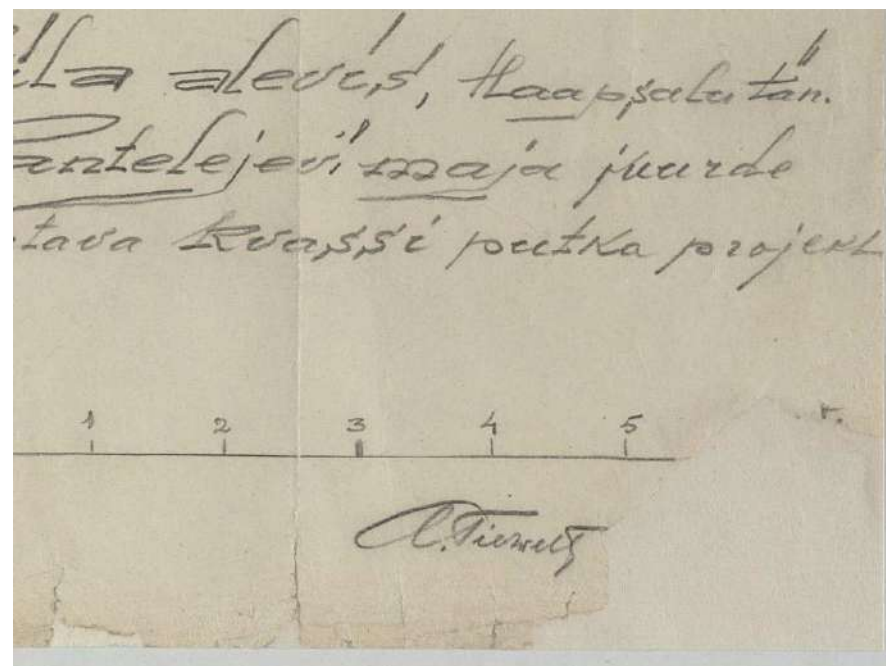 ila alevis, Haapsalu tän.
Pantelejevi maja juurde
tava kvassi putka projekt
1 2 3 4 5 r.